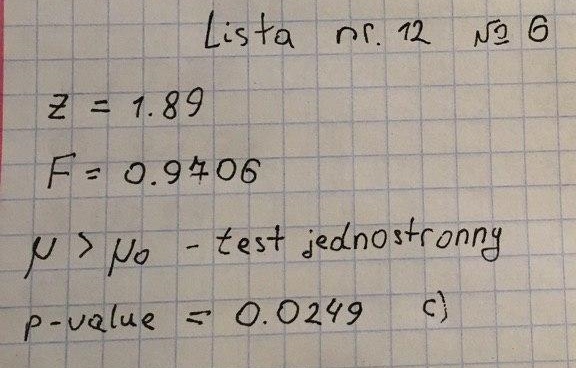 Lista nr. 12 № 6
Z = 1.89
F = 0.9706
μ > μ0 - test jednostronny
p-value = 0.0249 c)